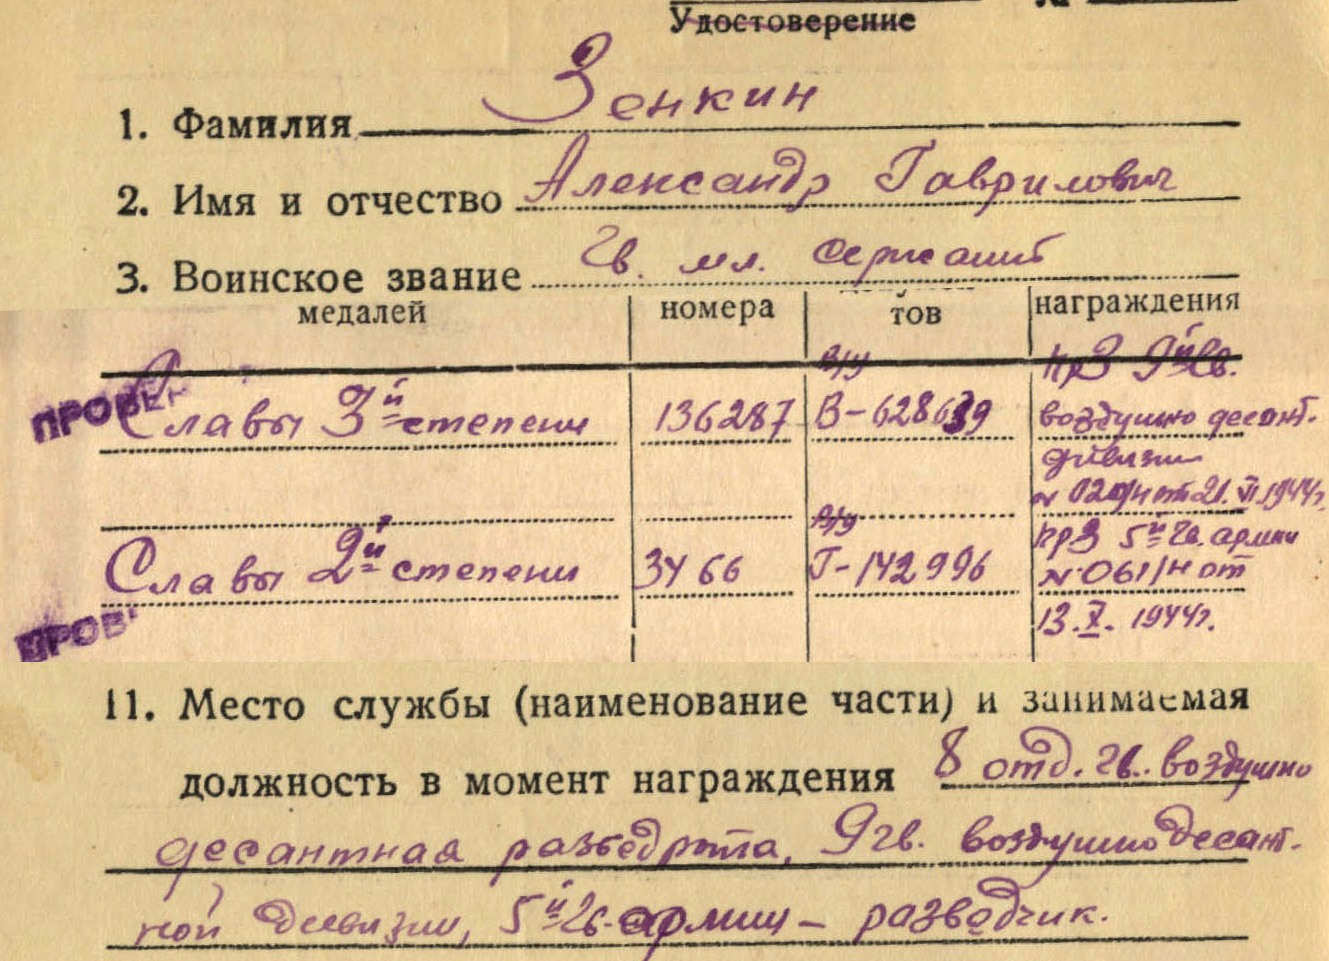 Удостоверение
1. Фамилия Зенкин
2. Имя и отчество Александр Гаврилович
3. Воинское звание Гв. мл. сержант
медалей номера тов награждения
В/у Пр3 9й гв.
ПРОВЕН Славы 3й степени 136287 В-628639 воздушно десант.
дивизии
№ 020/н от 21.VI.1944г.
В/у Пр3 5й гв. армии
Славы 2й степени 3466 Г-142996 № 061/н от
ПРОВ 13.X.1944г.
11. Место службы (наименование части) и занимаемая
должность в момент награждения 8 отд. гв. воздушно
десантная разведрота, 9 гв. воздушно десант-
ной дивизии, 5й гв. армии - разведчик.